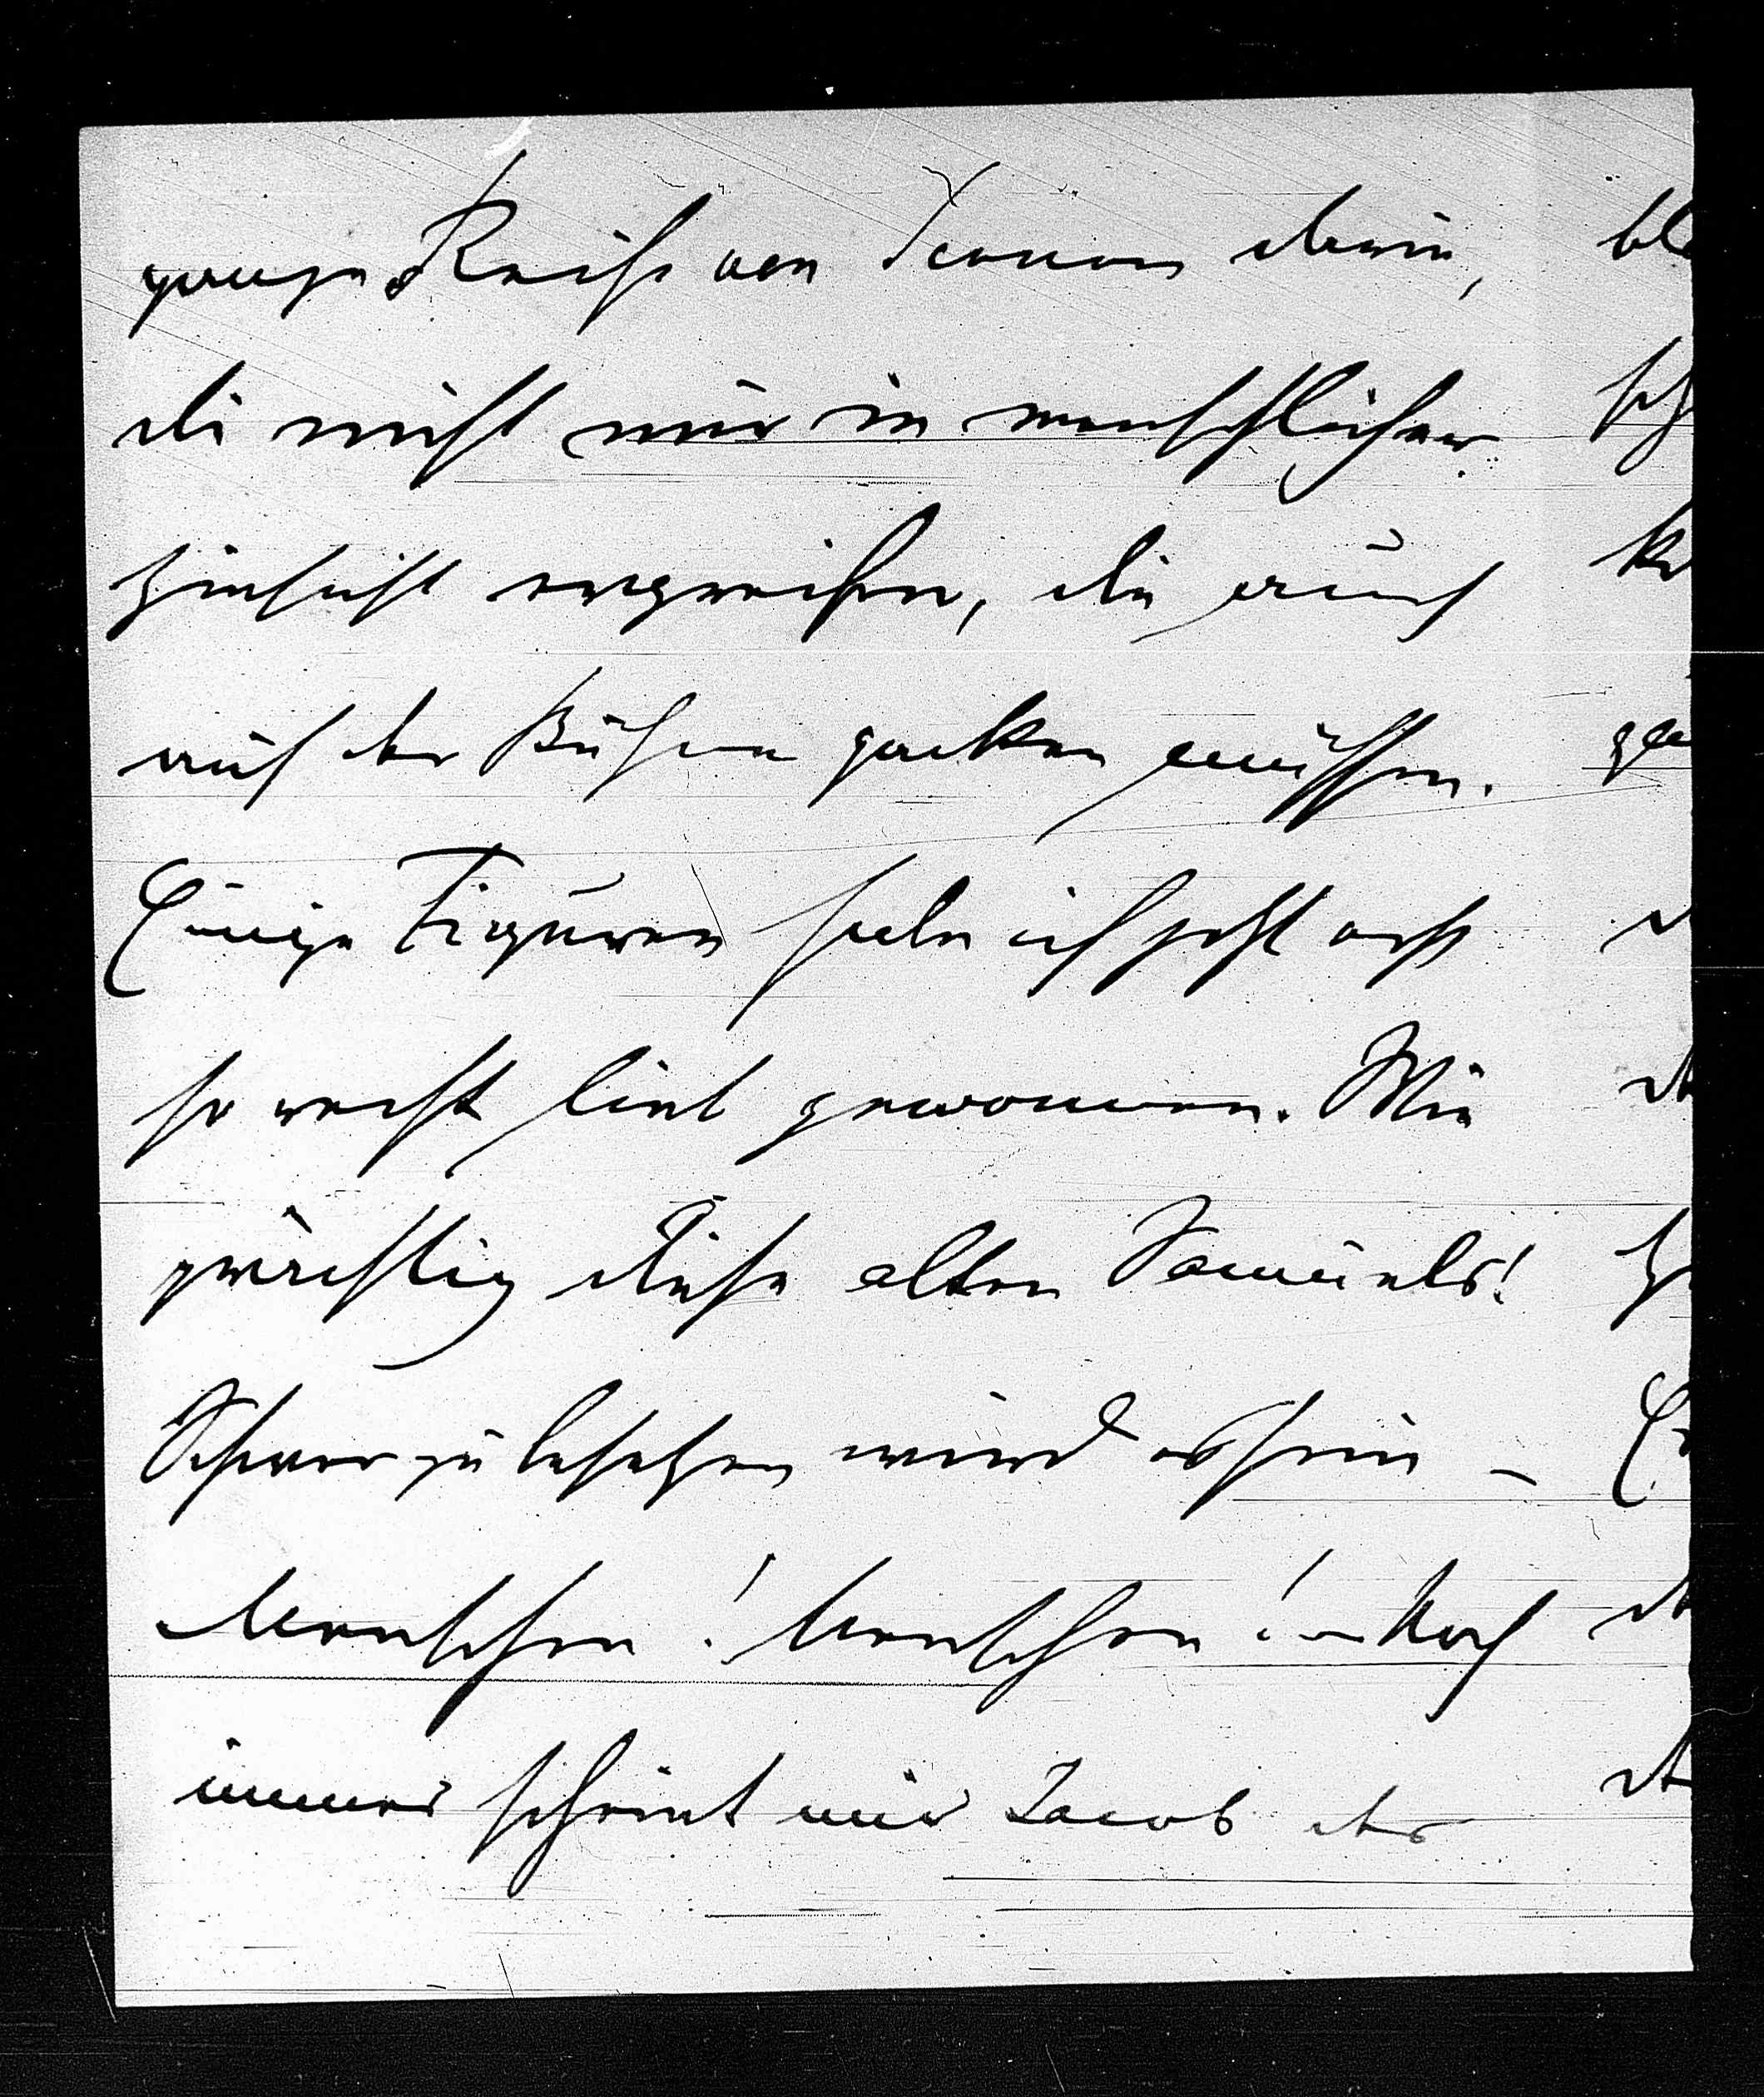 ganze Reihe von Scenen darin,
die nicht nur in menschlicher
Hinsicht ergreifen, die auch
auf der Bühne packen müssen.
Einige Figuren habe ich jetzt erst
so recht lieb gewonnen. Wie
prächtig diese alten Samuels!
Schwer zu besetzen wird es sein –
Menschen! Menschen! – Noch
immer scheint mir Jacob der